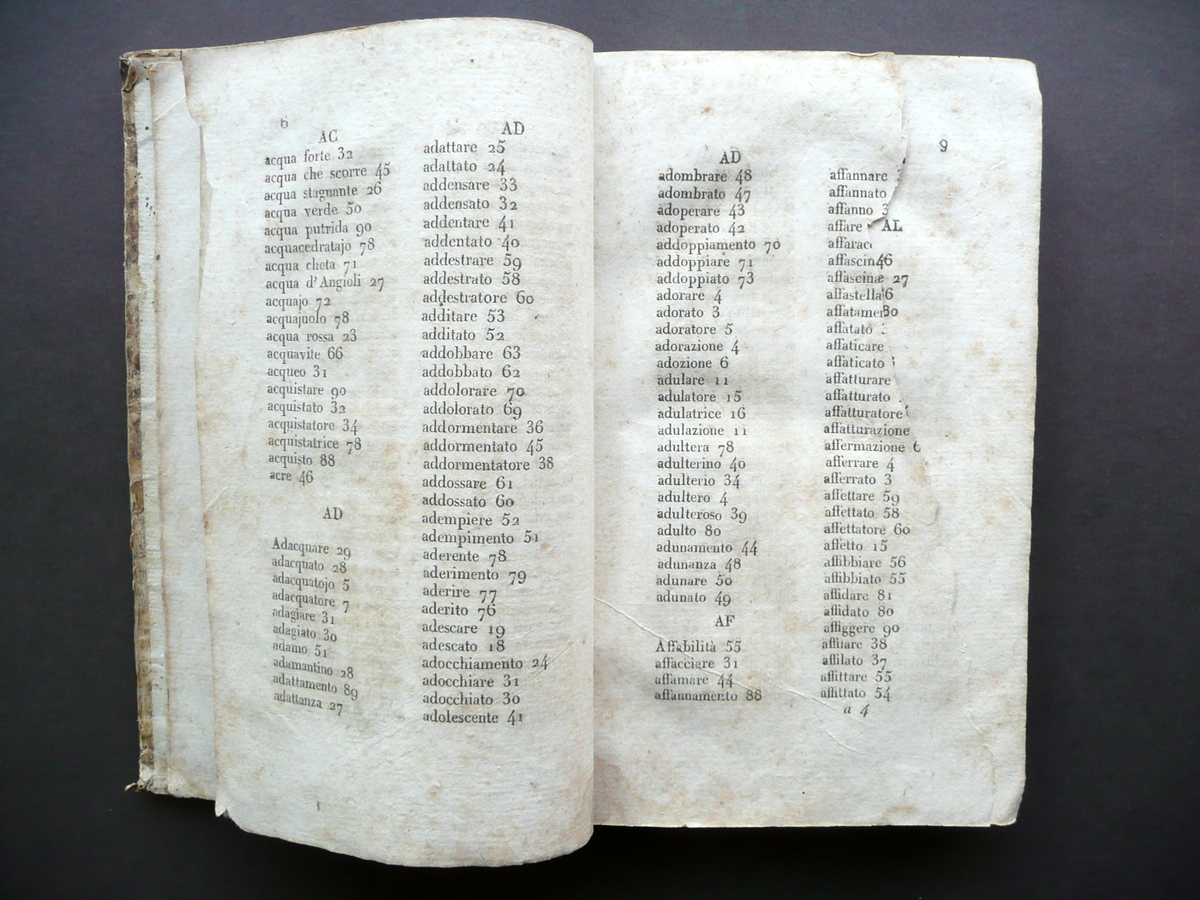 6
AC
acqua forte 32
acqua che scorre 45
acqua stagnante 26
acqua verde 50
acqua putrida 90
acquacedratajo 78
acqua cheta 71
acqua d'Angioli 27
acquajo 72
acquajuolo 78
acqua rossa 23
acquavite 66
acqueo 31
acquistare 90
acquistato 32
acquistatore 34
acquistatrice 78
acquisto 88
acre 46
AD
Adacquare 29
adacquato 28
adacquatojo 5
adacquatore 7
adagiare 31
adagiato 30
adamo 51
adamantino 28
adattamento 89
adattanza 27
AD
adattare 25
adattato 24
addensare 33
addensato 32
addentare 41
addentato 40
addestrare 59
addestrato 58
addestratore 60
additare 53
additato 52
addobbare 63
addobbato 62
addolorare 70
addolorato 69
addormentare 36
addormentato 45
addormentatore 38
addossare 61
addossato 60
adempiere 52
adempimento 51
aderente 78
aderimento 79
aderire 77
aderito 76
adescare 19
adescato 18
adocchiamento 24
adocchiare 31
adocchiato 30
adolescente 41
9
AD
adombrare 48
adombrato 47
adoperare 43
adoperato 42
addoppiamento 70
addoppiare 71
addoppiato 73
adorare 4
adorato 3
adoratore 5
adorazione 4
adozione 6
adulare 11
adulatore 15
adulatrice 16
adulazione 11
adultera 78
adulterino 40
adulterio 34
adultero 4
adulteroso 39
adulto 80
adunamento 44
adunanza 48
adunare 50
adunato 49
AF
Affabilità 55
affacciare 31
affamare 44
affannamento 88
affannare
affannato
affanno 3
affare AL
affarac
affascin 46
affascina 27
affastella 6
affatame 80
affatato
affaticare
affaticato
affatturare
affatturato
affatturatore
affatturazione
affermazione 6
afferrare 4
afferrato 3
affettare 59
affettato 58
affettatore 60
affetto 15
affibbiare 56
affibbiato 55
affidare 81
affidato 80
affiggere 90
affilare 38
affilato 37
affittare 55
affittato 54
a 4